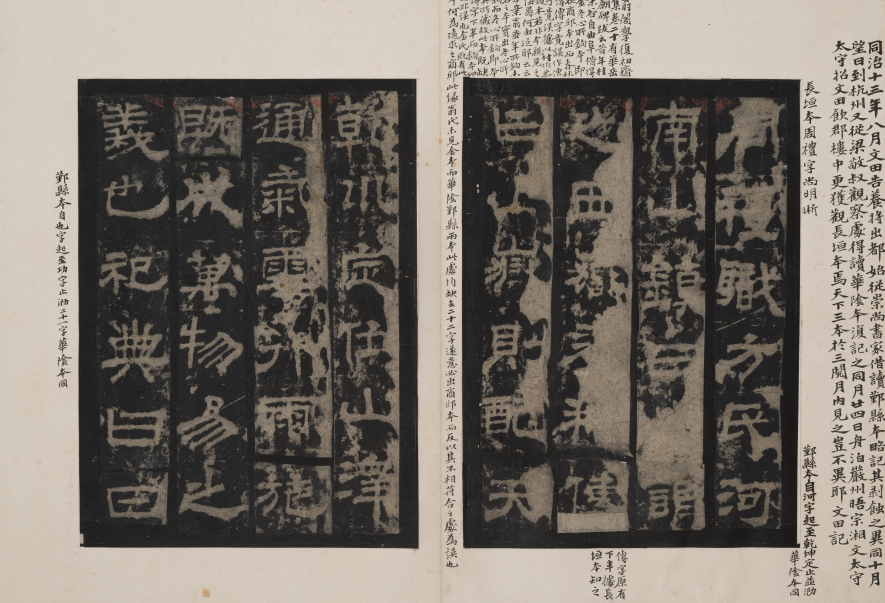 同治十三年八月文田告養將出都始從崇尚書家借讀鄞縣本略記其剥蝕之異同十月
望日到杭州又從梁敬叔觀察處得讀華陰本復記之同月廿四日舟泊嚴州晤宗湘文太守
太守招文田飲郡樓中更獲觀長垣本焉天下三本於三閱月內見之豈不異耶文田記
長垣本周禮字尚明晰
鄞縣本自河字起至乾坤定止並泐
華陰本同
周禮職方氏河
南山鎮曰謂
之西嶽春秋傳
曰山嶽則配天
傳字原有
下半據長
垣本知之
翁閣學復初齋
集卷二十有華岳
廟碑跋云昔年桂
未谷自曲阜借得
何爲遠求之商邱此緣翁氏未見全本而華陰鄞縣兩本此處均缺去二十二字遂意必出商邱本而反以其不相符合之處為誤也
乾坤定位山澤
通氣雲行雨施
既成萬物易之
義也祀典曰日
鄞縣本自也字起至功字止泐二十一字華陰本同